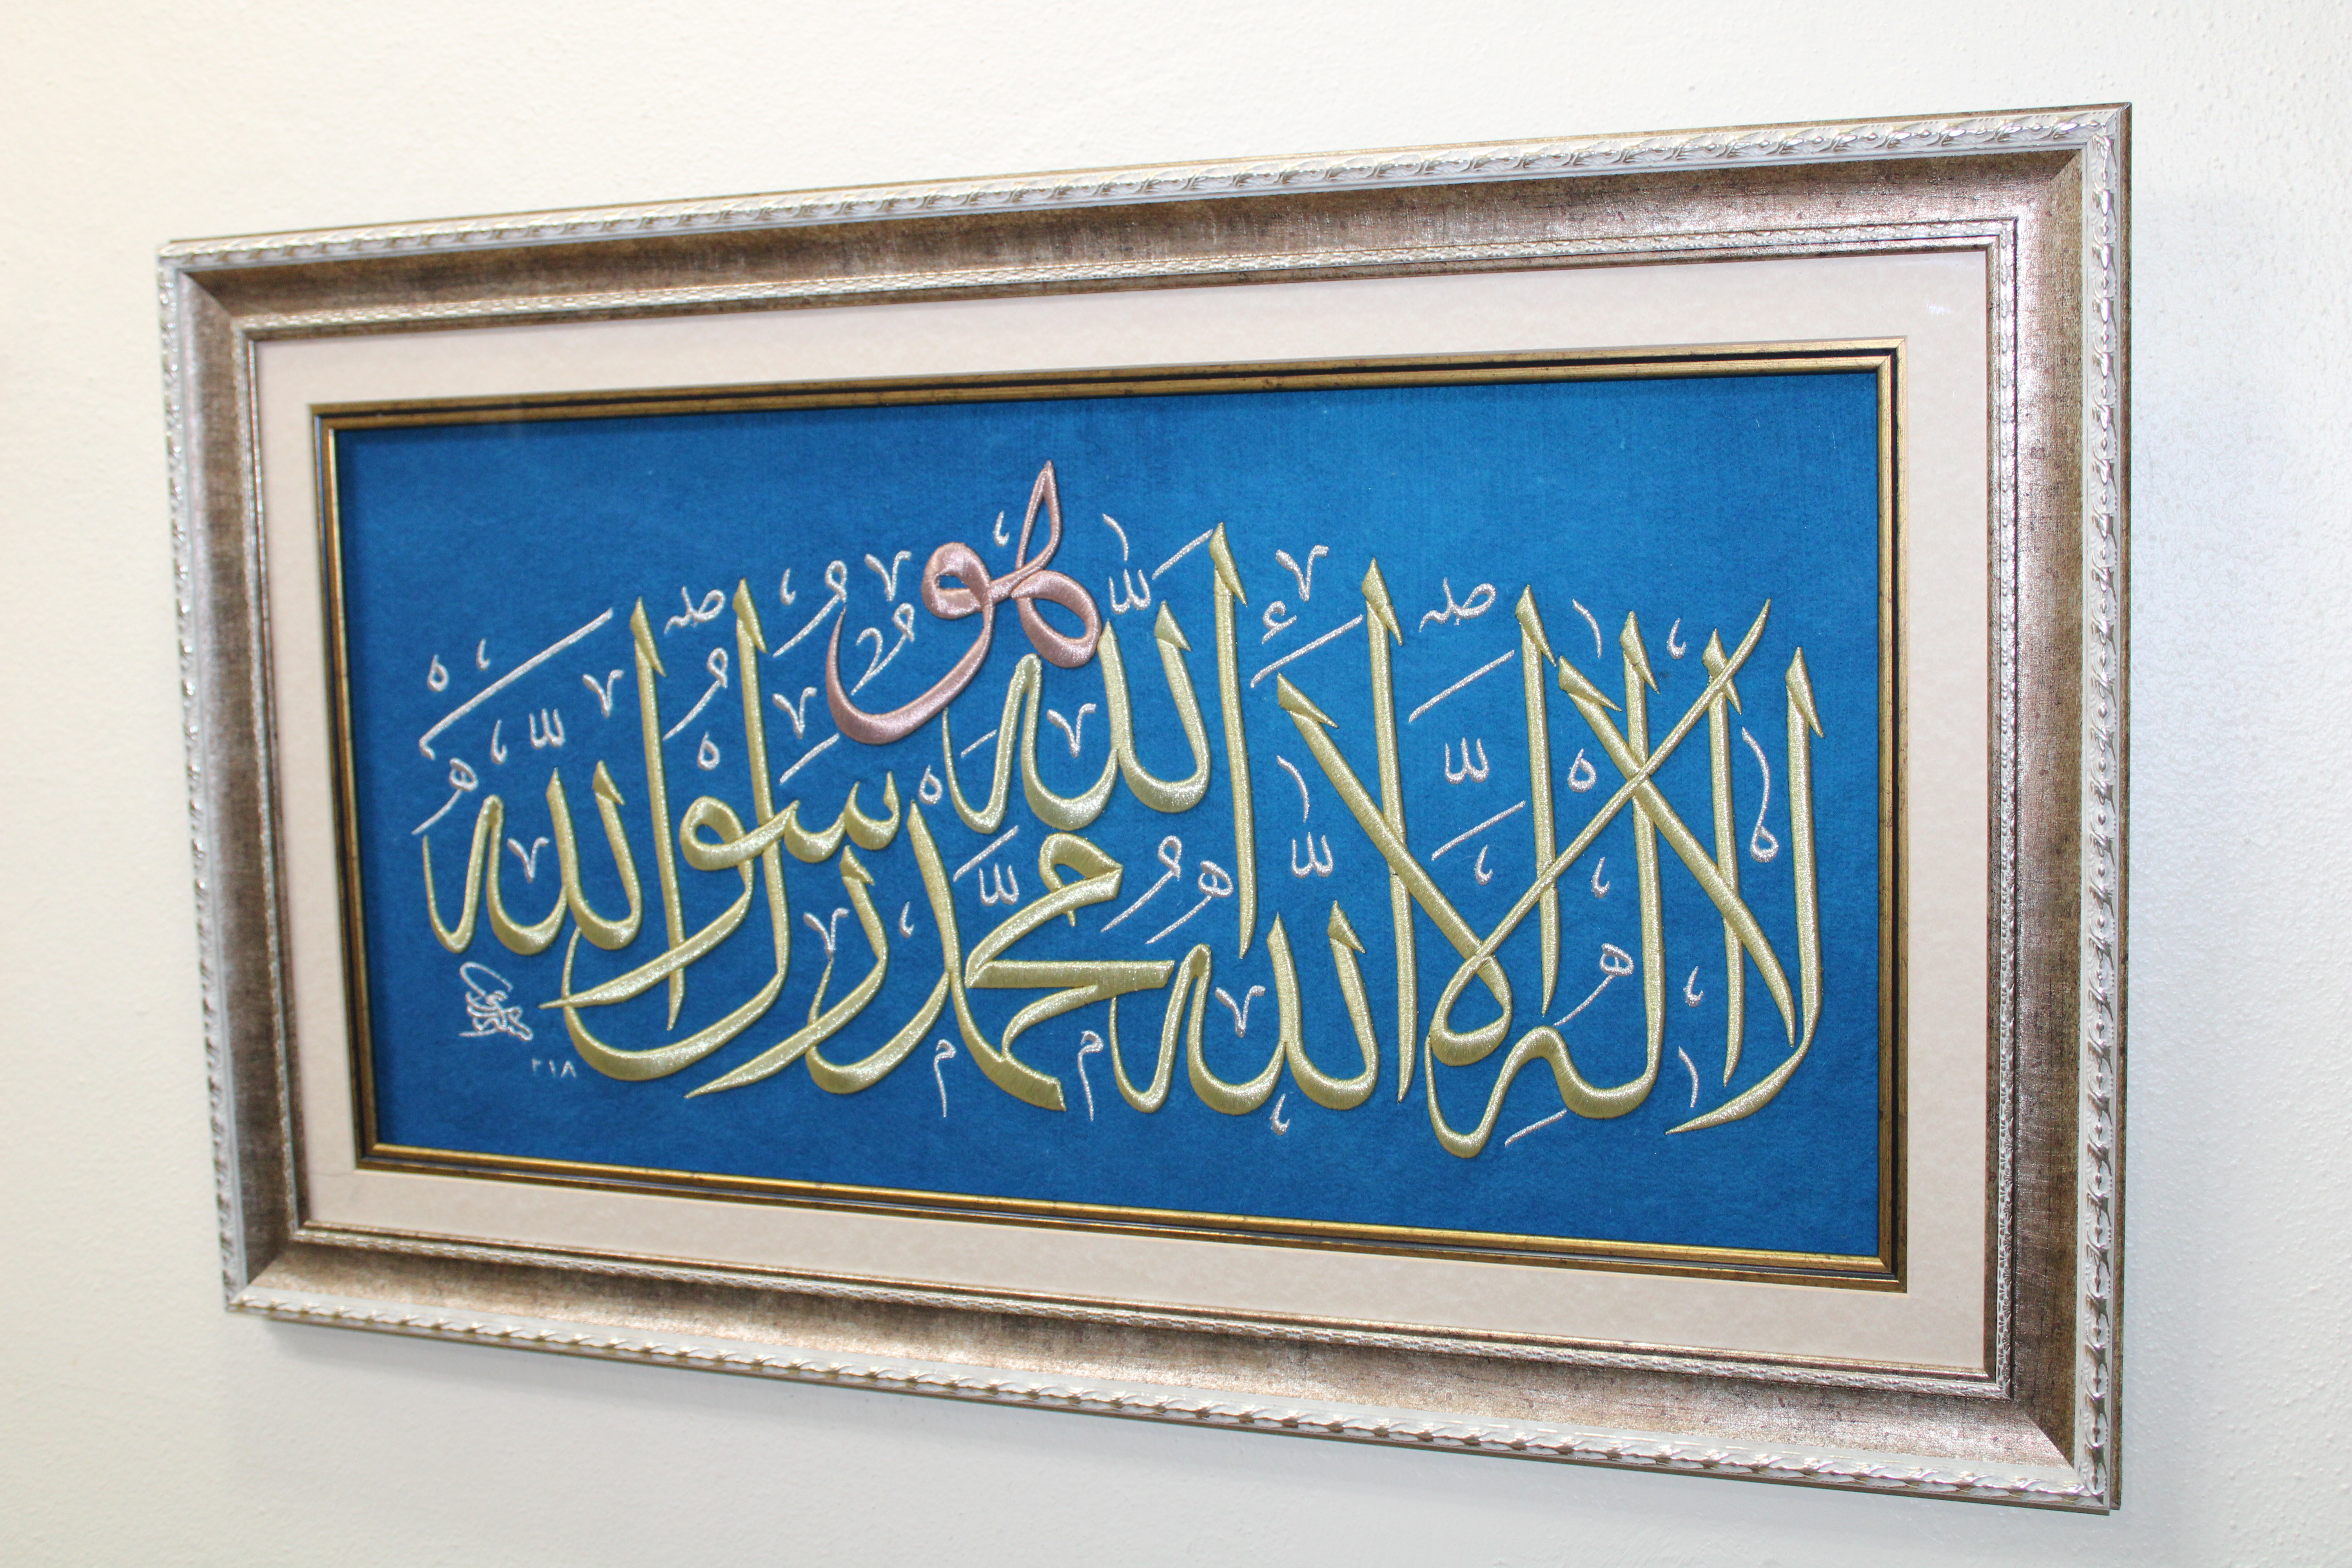 هو
لا اله الا الله الله محمد رسول الله
٢١٨